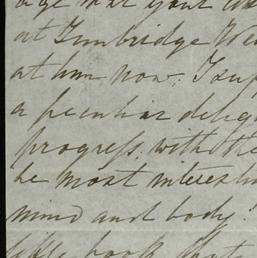 age that your
at Tunbridge We
at him now. I sup
a peculiar delig
progress, with the
be most interes
mind and body!
little book that